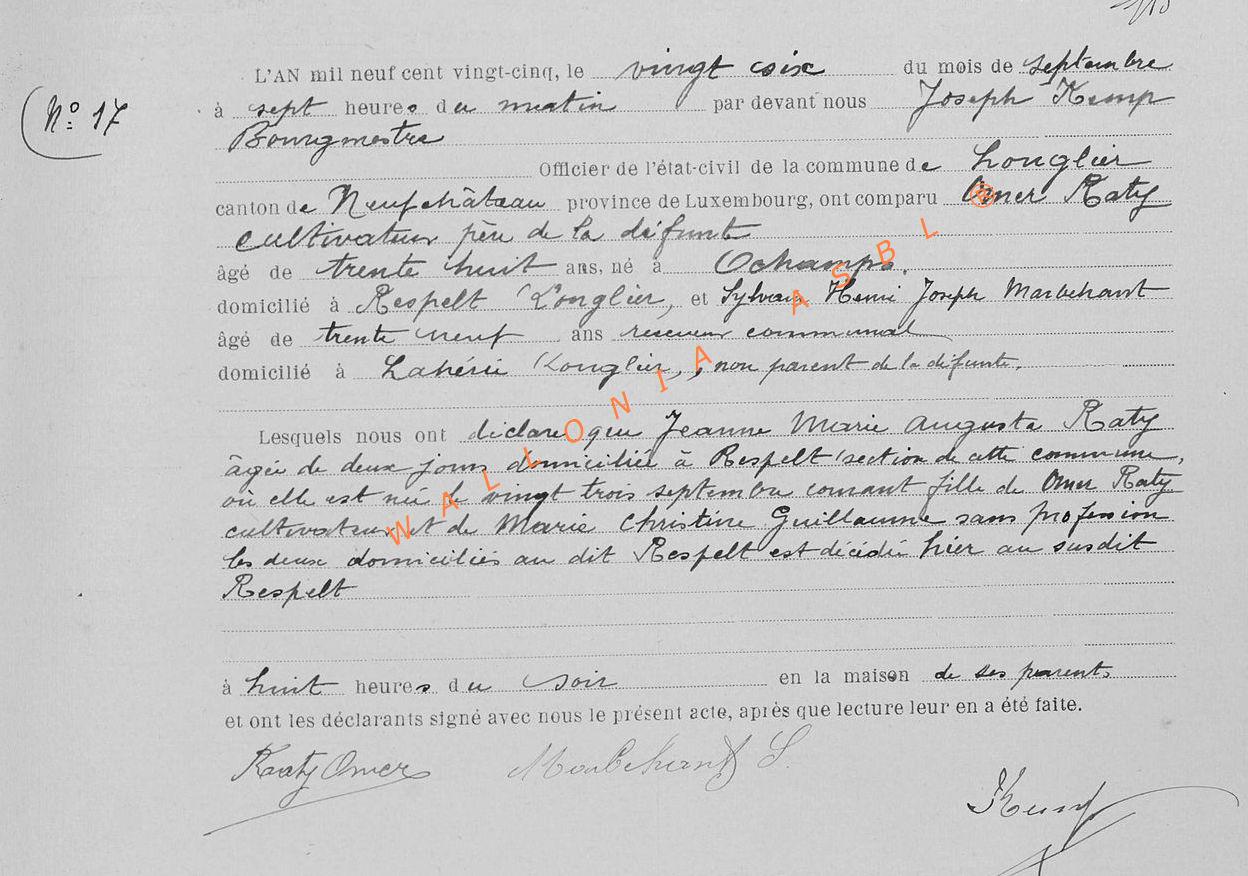 L'AN mil neuf cent vingt-cinq, le vingt six du mois de septembre
Nº 17
à sept heures du matin par devant nous Joseph Kemp
Bourgmestre
Officier de l'état-civil de la commune de Longlier
canton de Neufchâteau province de Luxembourg, ont comparu Omer Raty
cultivateur père de la défunte
âgé de trente huit ans, né à Ochamps.
domicilié à Respelt (Longlier, et Sylvain Henri Joseph Marbehant
âgé de trente neuf ans receveur communal
domicilié à Lahérie (Longlier, , non parent de la défunte.
Lesquels nous ont déclaré que Jeanne Marie Augusta Raty
âgée de deux jours domiciliée à Respelt (section de cette commune,
où elle est née le vingt trois septembre courant fille de Omer Raty
cultivateur et de Marie Christine Guillaume sans profession
les deux domiciliés au dit Respelt est décédée hier au susdit
Respelt
à huit heures du soir en la maison de ses parents
et ont les déclarants signé avec nous le présent acte, après que lecture leur en a été faite.
Raty Omer Marbehant S.
Kemp
WALLONIA ASBL ®